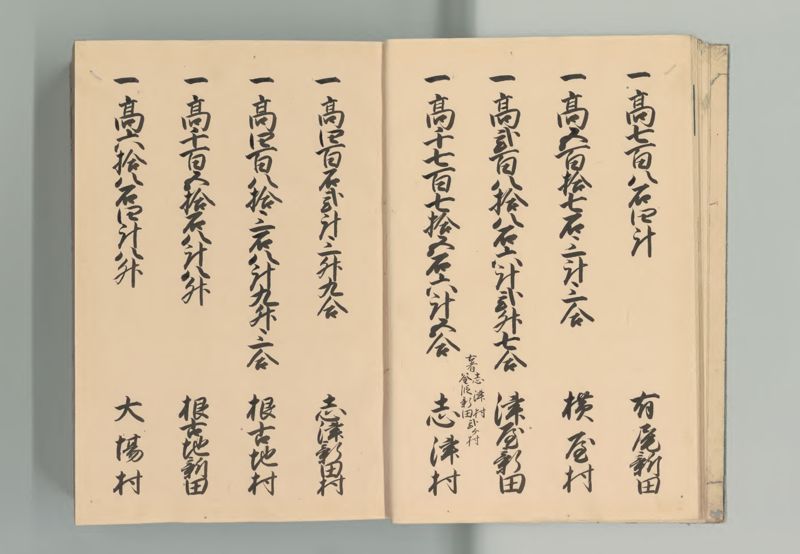 一 高七百八石四斗 有尾新田
一 高五百拾七石三斗三合 横屋村
一 高弐百八拾八石六斗弐升七合 津屋新田
古者志津村
新田弐ヶ村
一 高千七百七拾五石六斗五合 志津村
一 高四百石弐斗三升九合 志津新田村
一 高四百八拾三石八斗九升三合 根古地村
一 高千百五拾石八斗八升 根古地新田
一 高六拾八石四斗八升 大場村